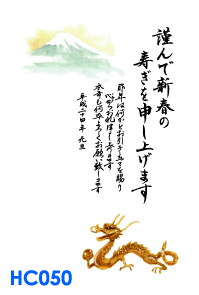 謹んで新春の
寿ぎを申し上げます
昨年は何かとお引き立てを賜り
心からお礼申し上げます
本年も何卒よろしくお願い致します
平成二十四年 元旦
HC050